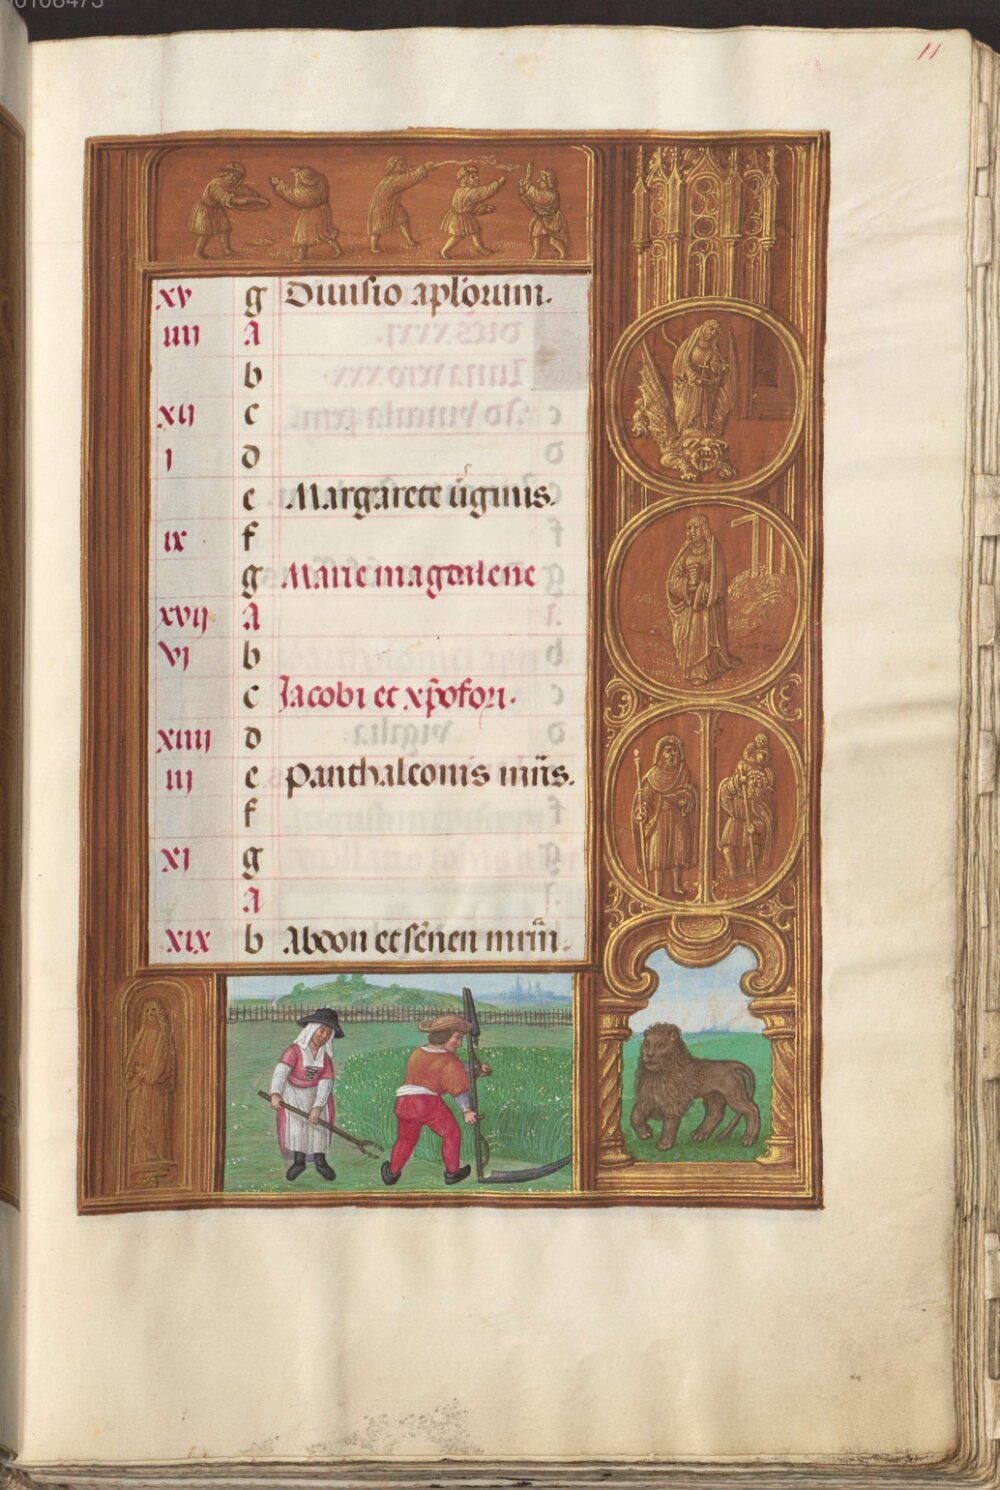 00108473
11
xv g Diuisio apl'orum.
iiii A
b
xii c
i d
e Margarete u'ginis.
ix f
g Marie magdalene
xvii A
vi b
c Jacobi et xp̄ofori.
xiiii d
iii e Panthaleonis mr̄is.
f
xi g
A
xix b Abdon et sēnen mr̄m̄.